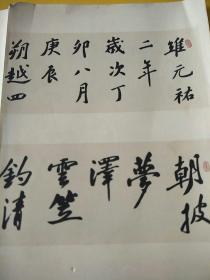 維元祐
二年
歲次丁
卯八月
庚辰
朔越四
朝披
夢
澤
雲笠
釣清